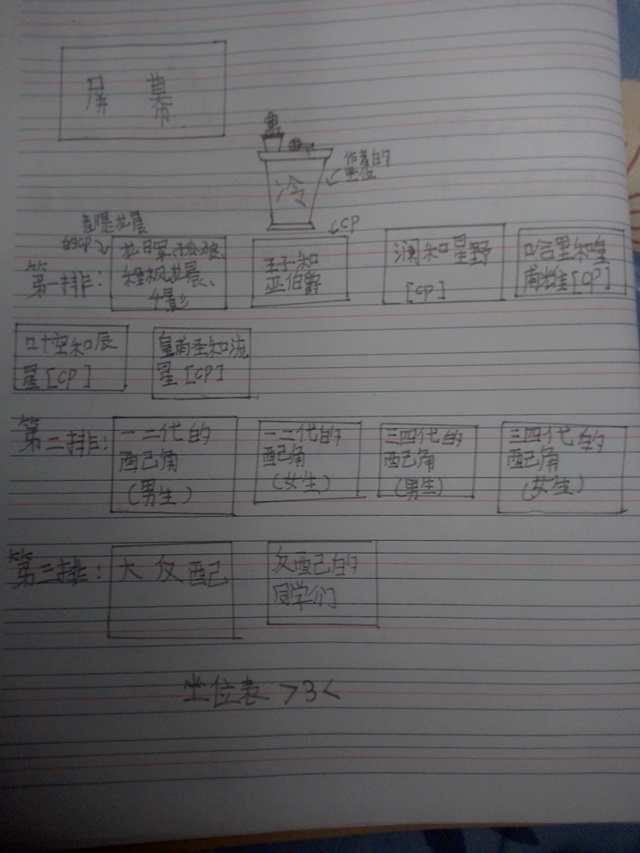 屏幕
作者的
坐位
冷
的cp
cp
第一排:
王子和
亚伯爵
澜和星野
[cp]
哈里和皇
[cp]
叶空和辰
星[cp]
皇甫圣和流
星[cp]
第二排:
一二代的
配角
(男生)
一二代的
配角
(女生)
三四代的
配角
(男生)
三四代的
配角
(女生)
第三排:
大反配
反配的
同学们
坐位表 >3<